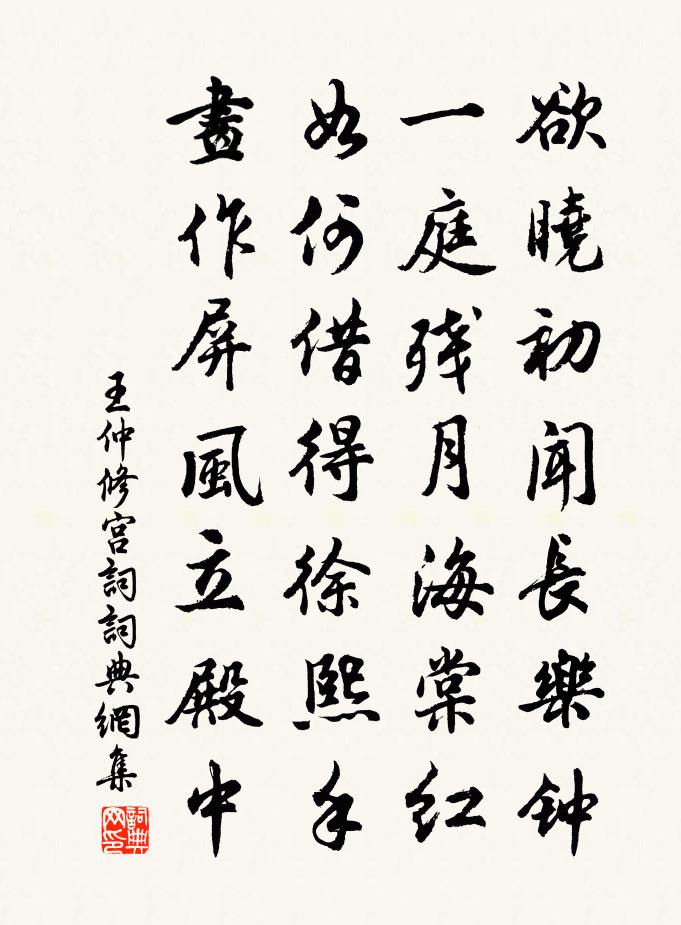 欲曉初闻長樂钟
一庭残月海棠红
如何借得徐熙手
畫作屏風立殿中
王仲修宫詞詞典網集
詞典网印